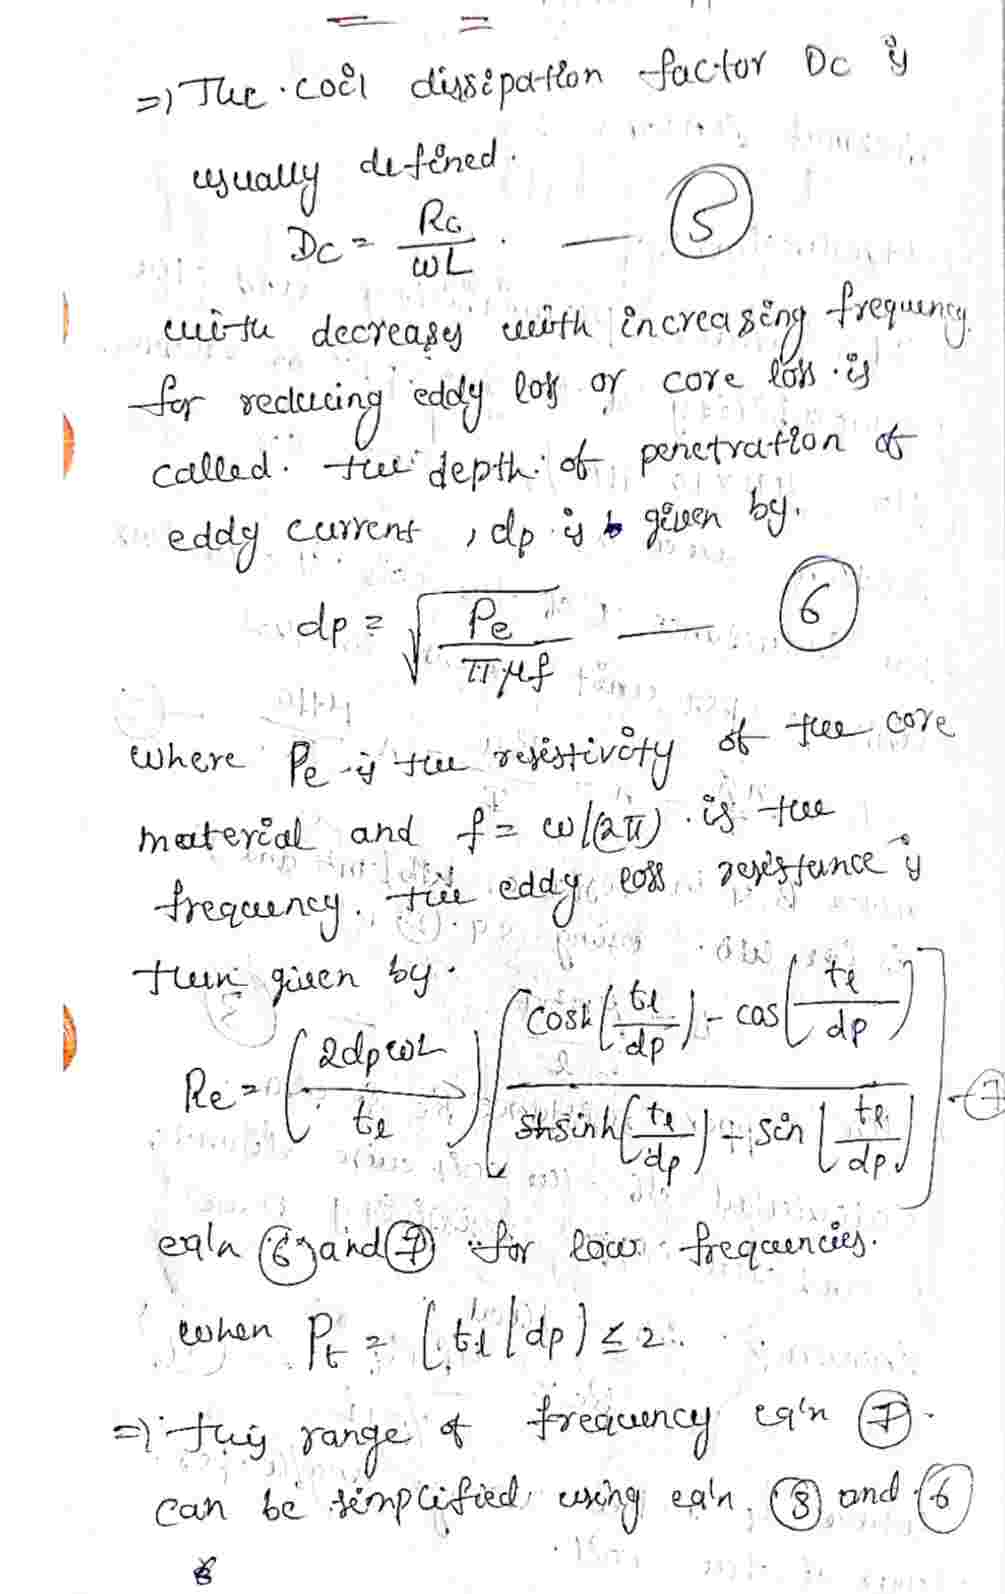 =) The coil dissipation factor Dc is
usually defined.
Dc = Rc/ωL . — (5)
with decreases with increasing frequency
for reducing eddy loss or core loss is
called. the depth of penetration of
eddy current, dp is given by.
dp = √(Pe/πμf) — (6)
where Pe is the resistivity of the core
material and f = ω/(2π) . is the
frequency. the eddy loss resistance is
then given by.
Re = (2dpωL/tl) [cosh(tl/dp) - cos(tl/dp) / sinh(tl/dp) + sin(tl/dp)] - (7)
eq'n (6) and (7) for low frequencies.
when Pt = (tl/dp) ≤ 2.
=) this range of frequency eq'n (7).
can be simplified using eq'n (3) and (6)